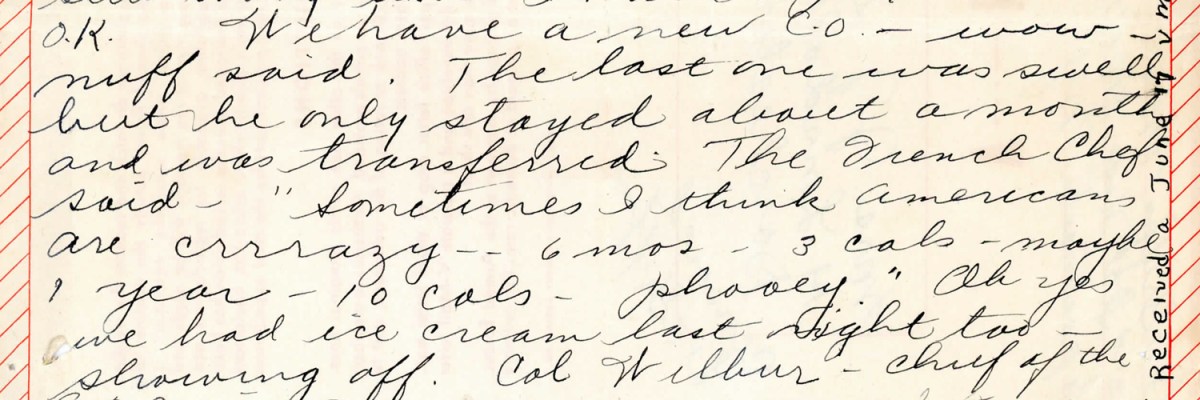 O.K. We have a new C.O. - wow -
nuff said. The last one was swell
but he only stayed about a month
and was transferred. The French Chef
said - "Sometimes I think Americans
are crrrazy -- 6 mos - 3 cols - maybe
1 year - 10 cols - phooey." Oh yes
we had ice cream last night too -
showing off. Col Wilbur - chief of the
Received a June 17 V m